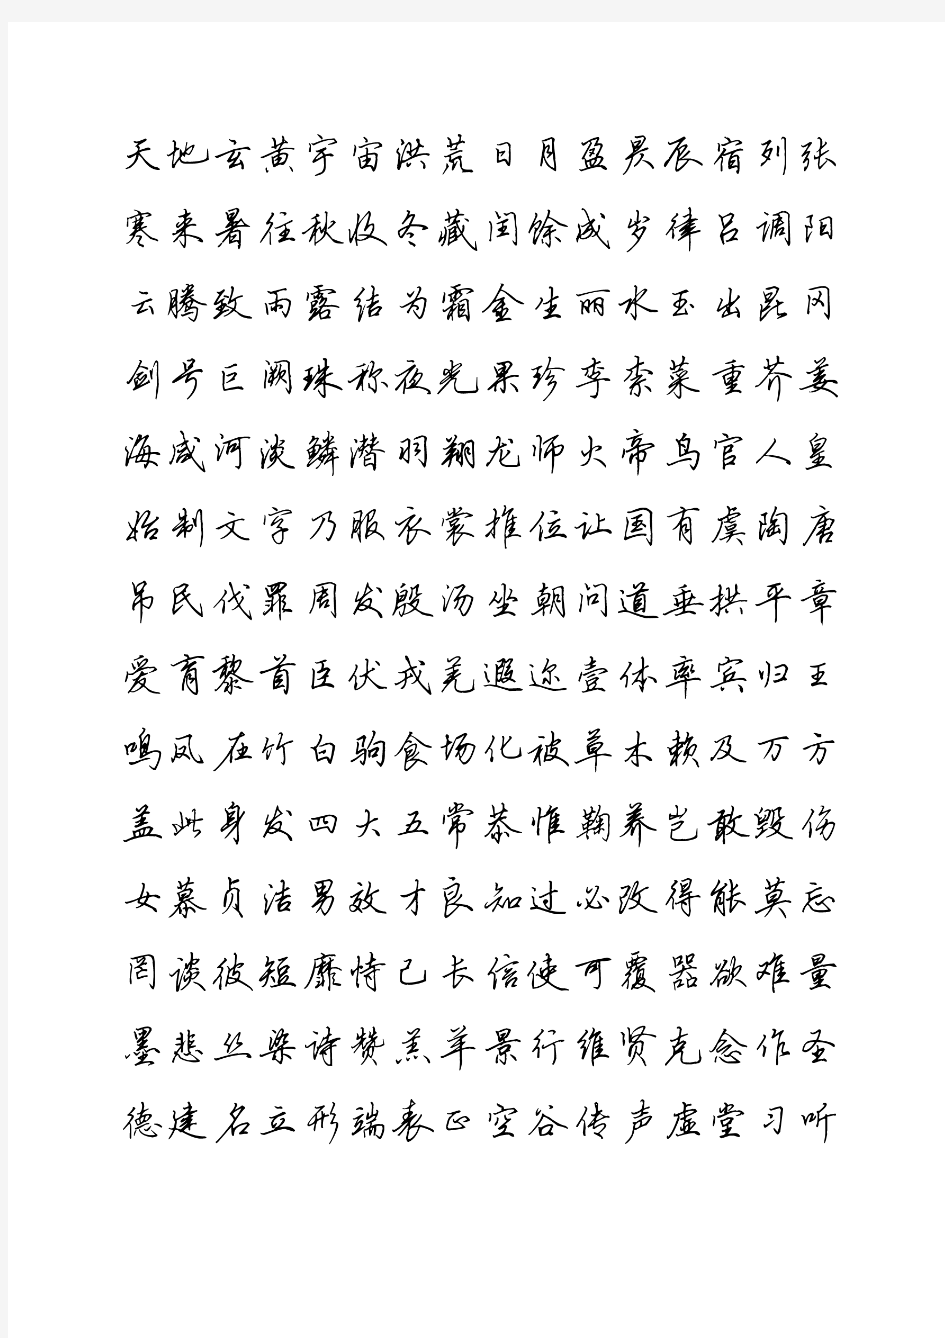 天地玄黄宇宙洪荒日月盈昃辰宿列张
寒来暑往秋收冬藏闰馀成岁律吕调阳
云腾致雨露结为霜金生丽水玉出昆冈
剑号巨阙珠称夜光果珍李柰菜重芥姜
海咸河淡鳞潜羽翔龙师火帝鸟官人皇
始制文字乃服衣裳推位让国有虞陶唐
吊民伐罪周发殷汤坐朝问道垂拱平章
爱育黎首臣伏戎羌遐迩壹体率宾归王
鸣凤在竹白驹食场化被草木赖及万方
盖此身发四大五常恭惟鞠养岂敢毁伤
女慕贞洁男效才良知过必改得能莫忘
罔谈彼短靡恃己长信使可覆器欲难量
墨悲丝染诗赞羔羊景行维贤克念作圣
德建名立形端表正空谷传声虚堂习听